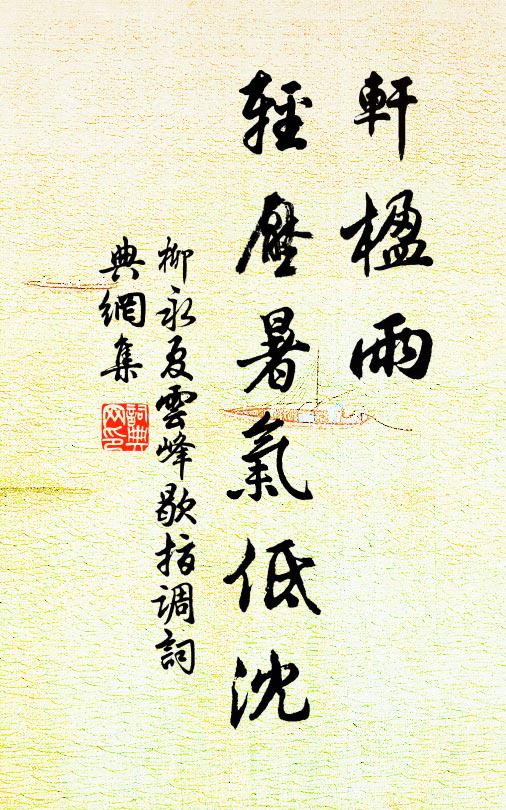 軒楹雨
輕壓暑氣低沈
柳永夏雲峰歇指调詞
典網集
詞典
网印